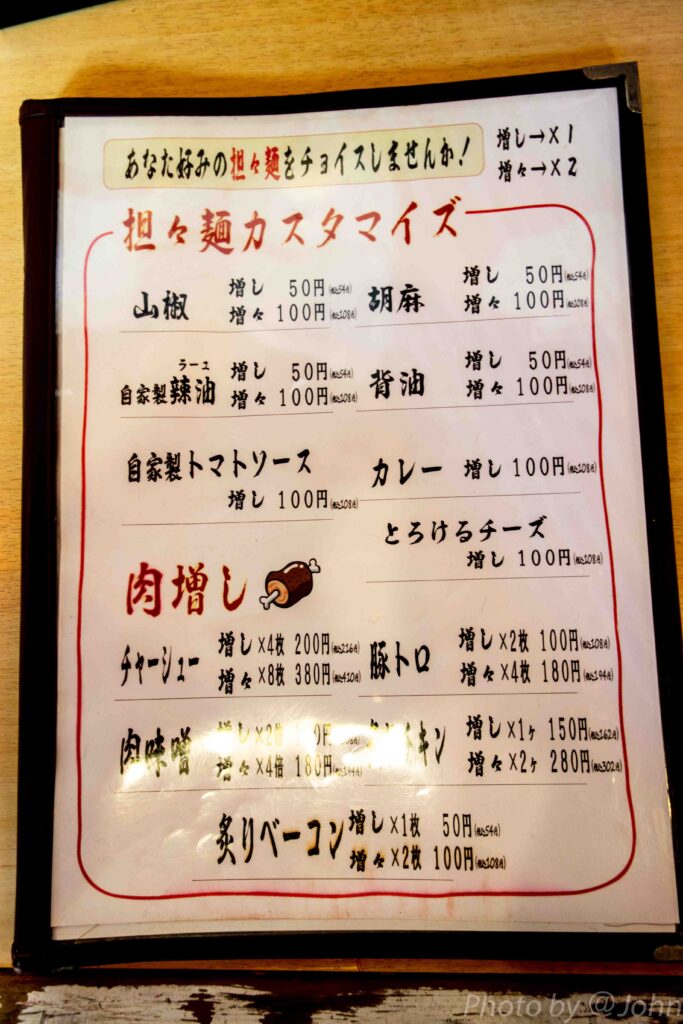 あなた好みの担々麺をチョイスしませんか!
増し→×1
増々→×2
担々麺カスタマイズ
山椒
増し 50円(税込54円)
増々 100円(税込108円)
胡麻
増し 50円(税込54円)
増々 100円(税込108円)
ラーユ
自家製辣油
増し 50円(税込54円)
増々 100円(税込108円)
背油
増し 50円(税込54円)
増々 100円(税込108円)
自家製トマトソース
増し 100円(税込108円)
カレー 増し 100円(税込108円)
とろけるチーズ
増し 100円(税込108円)
肉増し
チャーシュー
増し×4枚 200円(税込216円)
増々×8枚 380円(税込410円)
豚トロ
増し×2枚 100円(税込108円)
増々×4枚 180円(税込194円)
肉味噌
増し×2倍
増々×4倍 180円(税込194円)
チキン
増し×1ヶ 150円(税込162円)
増々×2ヶ 280円(税込302円)
炙りベーコン
増し×1枚 50円(税込54円)
増々×2枚 100円(税込108円)
Photo by @John